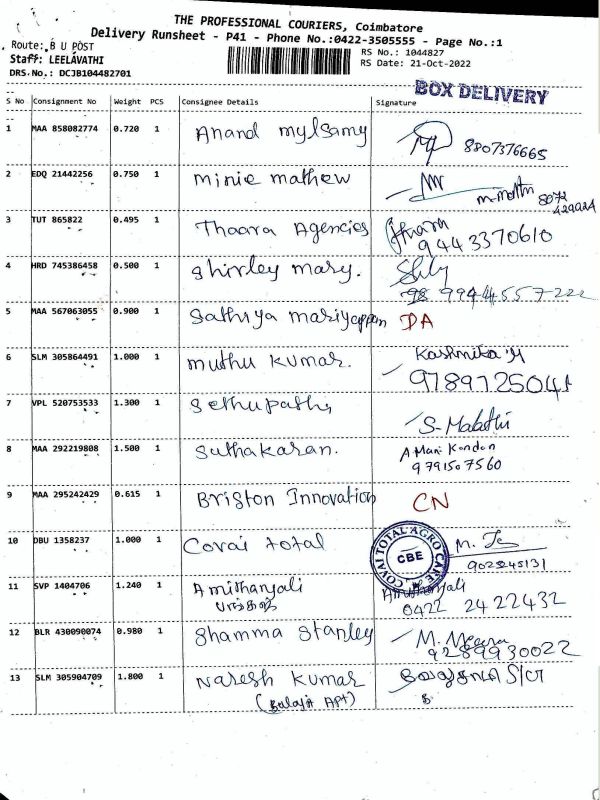 THE PROFESSIONAL COURIERS, Coimbatore
Delivery Runsheet - P41 - Phone No.:0422-3505555 - Page No.:1
Route: B U POST
RS No.: 1044827
Staff: LEELAVATHI
RS Date: 21-Oct-2022
DRS.No.: DCJB104482701
BOX DELIVERY
S No Consignment No Weight PCS Consignee Details Signature
1 MAA 858082774 0.720 1 Anand mylsamy 8807376665
2 EDQ 21442256 0.750 1 minie mathew
3 TUT 865822 0.495 1 Thaara Agencies 9443370610
4 HRD 745386458 0.500 1 Shirley mary.
98 9944557222
5 MAA 567063055 0.900 1 Sathiya mariyappan DA
6 SLM 305864491 1.000 1 muthu kumar. Kashmika M
9789725041
7 VPL 520753533 1.300 1 Sethupathy
S-Malathi
8 MAA 292219808 1.500 1 Suthakaran. A Mani Kandan
9791507560
9 MAA 295242429 0.615 1 Briston Innovation CN
10 DBU 1358237 1.000 1 Covai total M.
COVAI TOTAL AGRO CARE
CBE
9025245131
11 SVP 1404706 1.240 1 Amithanjali
0422 2422432
12 BLR 430090074 0.980 1 Shamma Stanley M. Meera
9289930022
13 SLM 305904709 1.800 1 Naresh Kumar
(Balaji Apt)